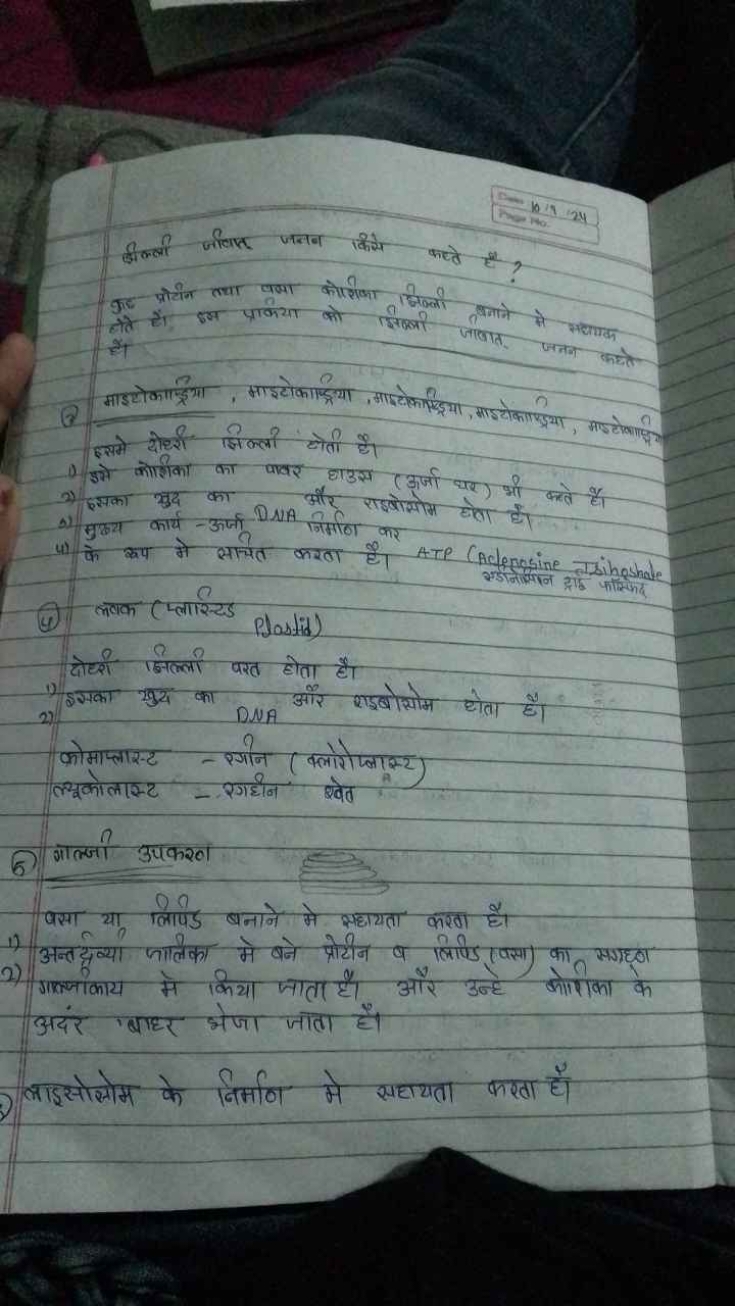 Date 10 9 24
Page No.
झिल्ली जीवात् जनन किसे कहते है ?
कुछ प्रोटीन तथा वसा कोशिका झिल्ली बनाने मे सहायक
होते है। इस प्रकिया को झिल्ली जीवात् जनन कहते
है।
माइटोकाण्ड्रिया , माइटोकाण्ड्रिया , माइटोकाण्ड्रिया, माइटोकाण्ड्रिया, माइटोकाण्ड्रिय
इसमे दोहरी झिल्ली होती है।
1) इसे कोशिका का पावर हाउस (ऊर्जा घर) भी कहते है।
2) इसका खुद का DNA और राइबोसोम होता है।
3) मुख्य कार्य - ऊर्जा निर्माण कर ATP (Adenosine
4) के रूप मे संचित करता है।
4 लवक (प्लास्टिड Plastid)
दोहरी झिल्ली परत होता है।
1) इसका खुद का DNA और राइबोसोम होता है।
2)
कोमाप्लास्ट - रगीन (क्लोरोप्लास्ट)
ल्यूकोलास्ट - रगहीन श्वेत
5 गाल्जी उपकरण
वसा या लिपिड बनाने मे सहायता करता है।
1) अन्तर्द्रव्यी जालिका मे बने प्रोटीन व लिपिड (वसा) का सग्रहण
2) गाल्जीकाय मे किया जाता है। और उन्हे कोशिका के
अदंर बाहर भेजा जाता है।
3) लाइसोसोम के निर्माण मे सहायता करता है।